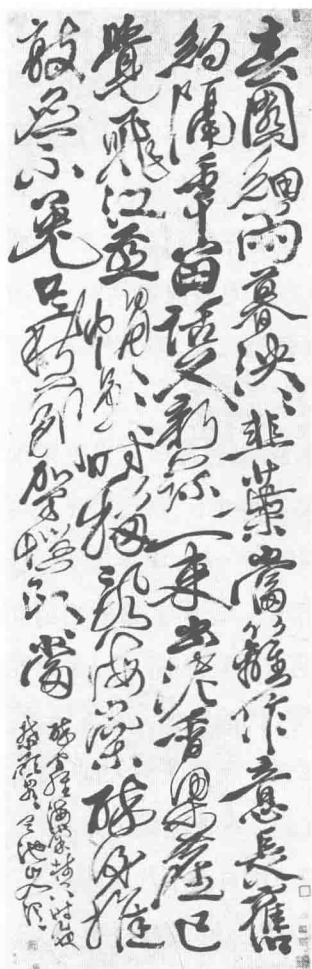 春園細雨暮泱泱韭葉當籬作意長舊
約隔年留話久新蔬一束出泥香梁塵已
覺飛江燕帽影時移亂海棠醉後推
敲應不免只愁別駕惱郎當
醉間經海棠樹下時夜
禁欲盡天池